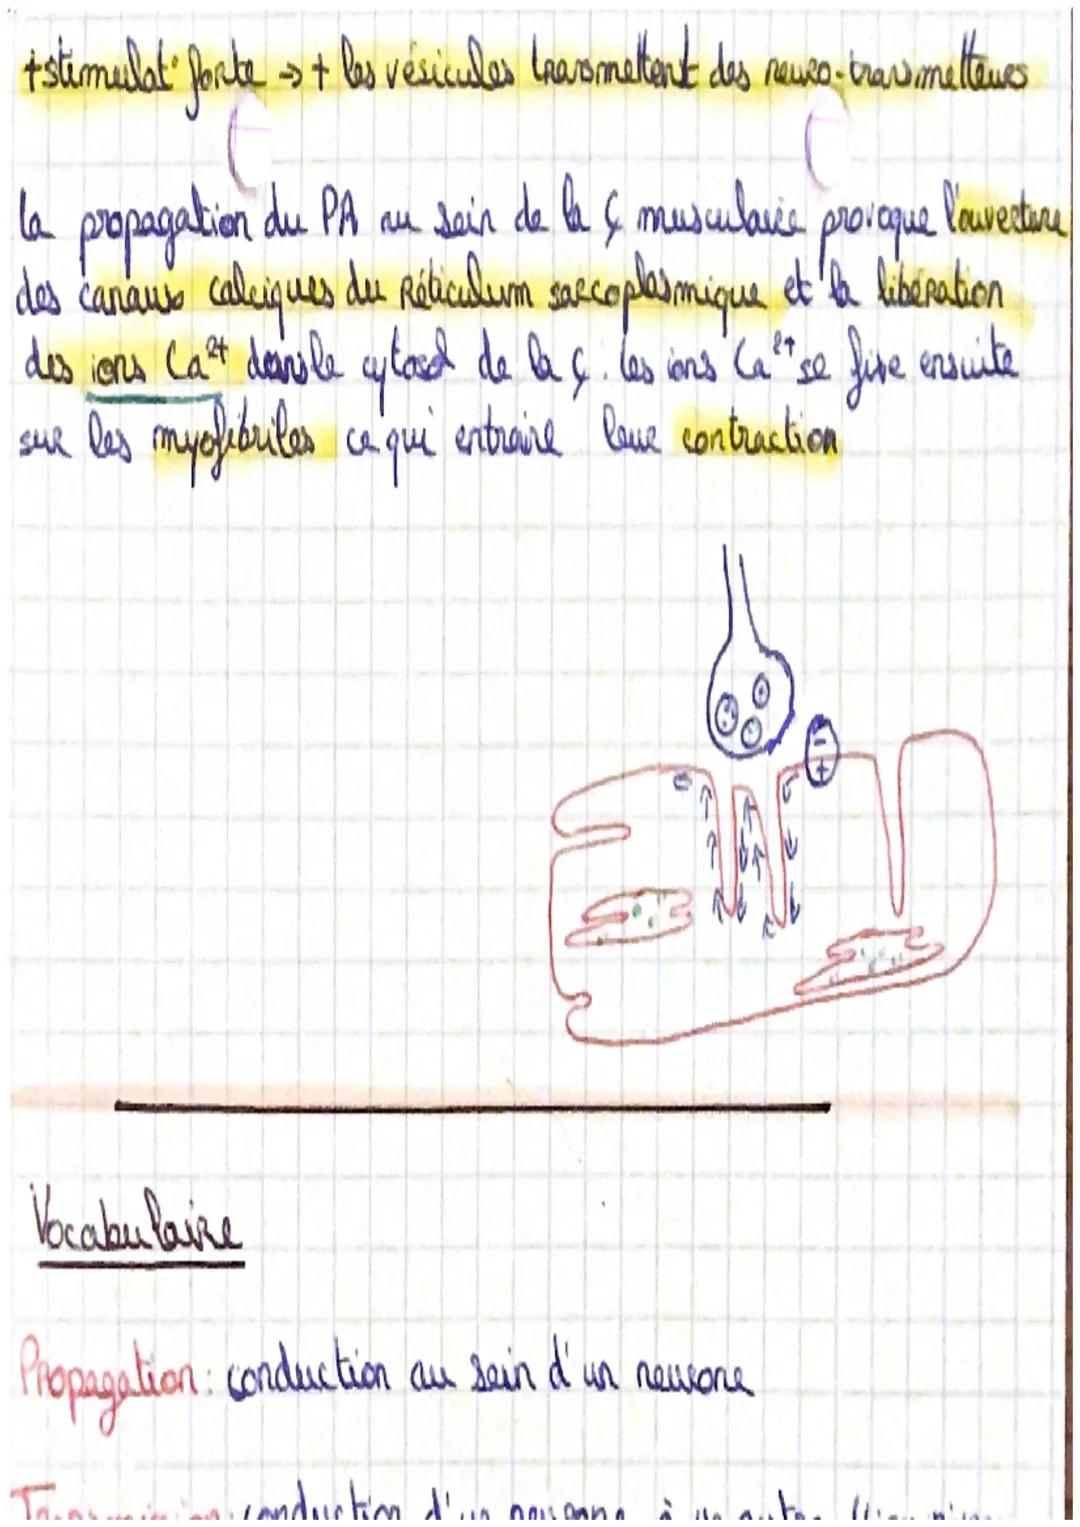 +stimulat° forte → + les vésicules transmettent des neuro-transmetteurs
la propagation du PA au sein de la ç musculaire provoque l'ouverture
des canaux calciques du Réticulum sarcoplasmique et la libération
des ions Ca²⁺ dans le cytosol de la ç. les ions Ca²⁺ se fixe ensuite
sur les myofibriles ce qui entraine leur contraction
-
+
Vocabulaire
Propagation : conduction au sein d'un neurone
Transmission : conduction d'un neurone à un autre